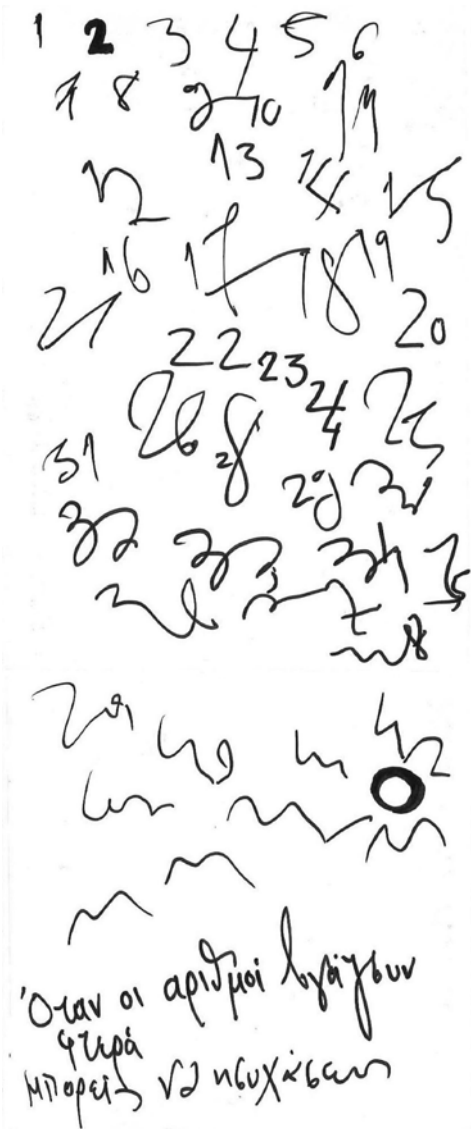 1 2 3 4 5 6
7 8 9 10 11
12 13 14 15
16 17 18 19
21 20
22 23
26 28 24 25
31 29
32 33 34 35
37
38
39 40 41 42
43
Όταν οι αριθμοί βγάζουν
φτερά
μπορείς να ησυχάσεις